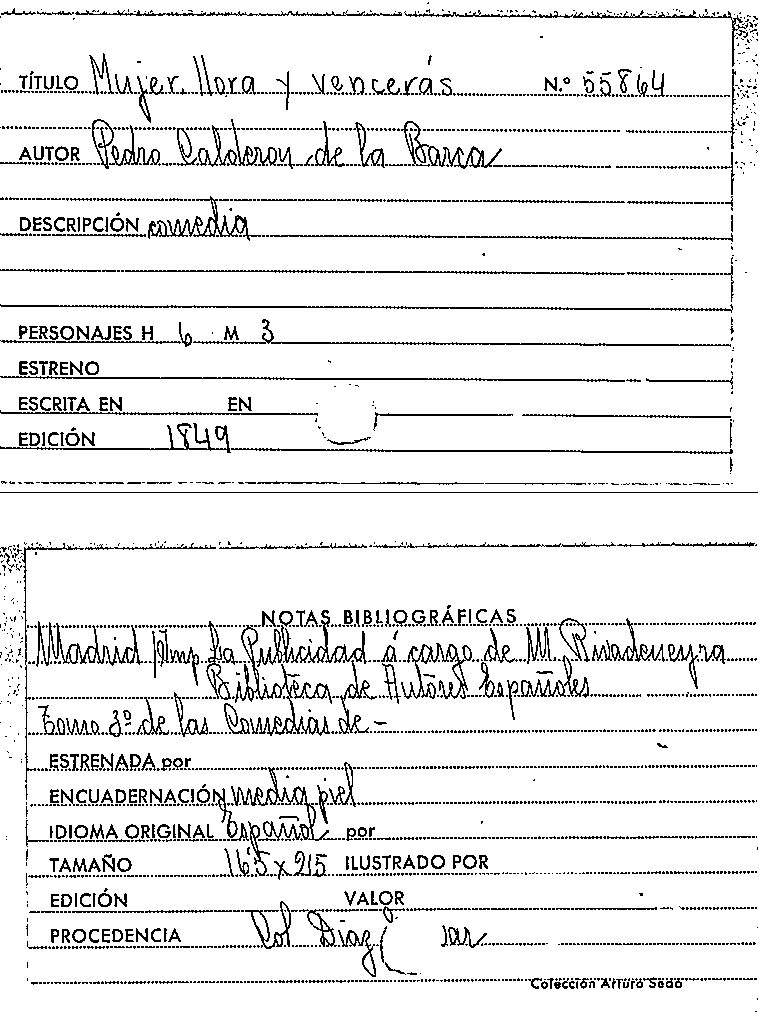 TÍTULO Mujer, llora y vencerás N.º 55864
AUTOR Pedro Calderon de la Barca
DESCRIPCIÓN comedia
PERSONAJES H 6 M 3
ESTRENO
ESCRITA EN EN
EDICIÓN 1849
NOTAS BIBLIOGRÁFICAS
Madrid Imp. La Publicidad á cargo de M. Rivadeneyra
Biblioteca de Autores Españoles
Tomo 3º de las Comedias de -
ESTRENADA por
ENCUADERNACIÓN media piel
IDIOMA ORIGINAL Español por
TAMAÑO ILUSTRADO POR
EDICIÓN VALOR
PROCEDENCIA Col Diaz
Colección Arturo Sedó